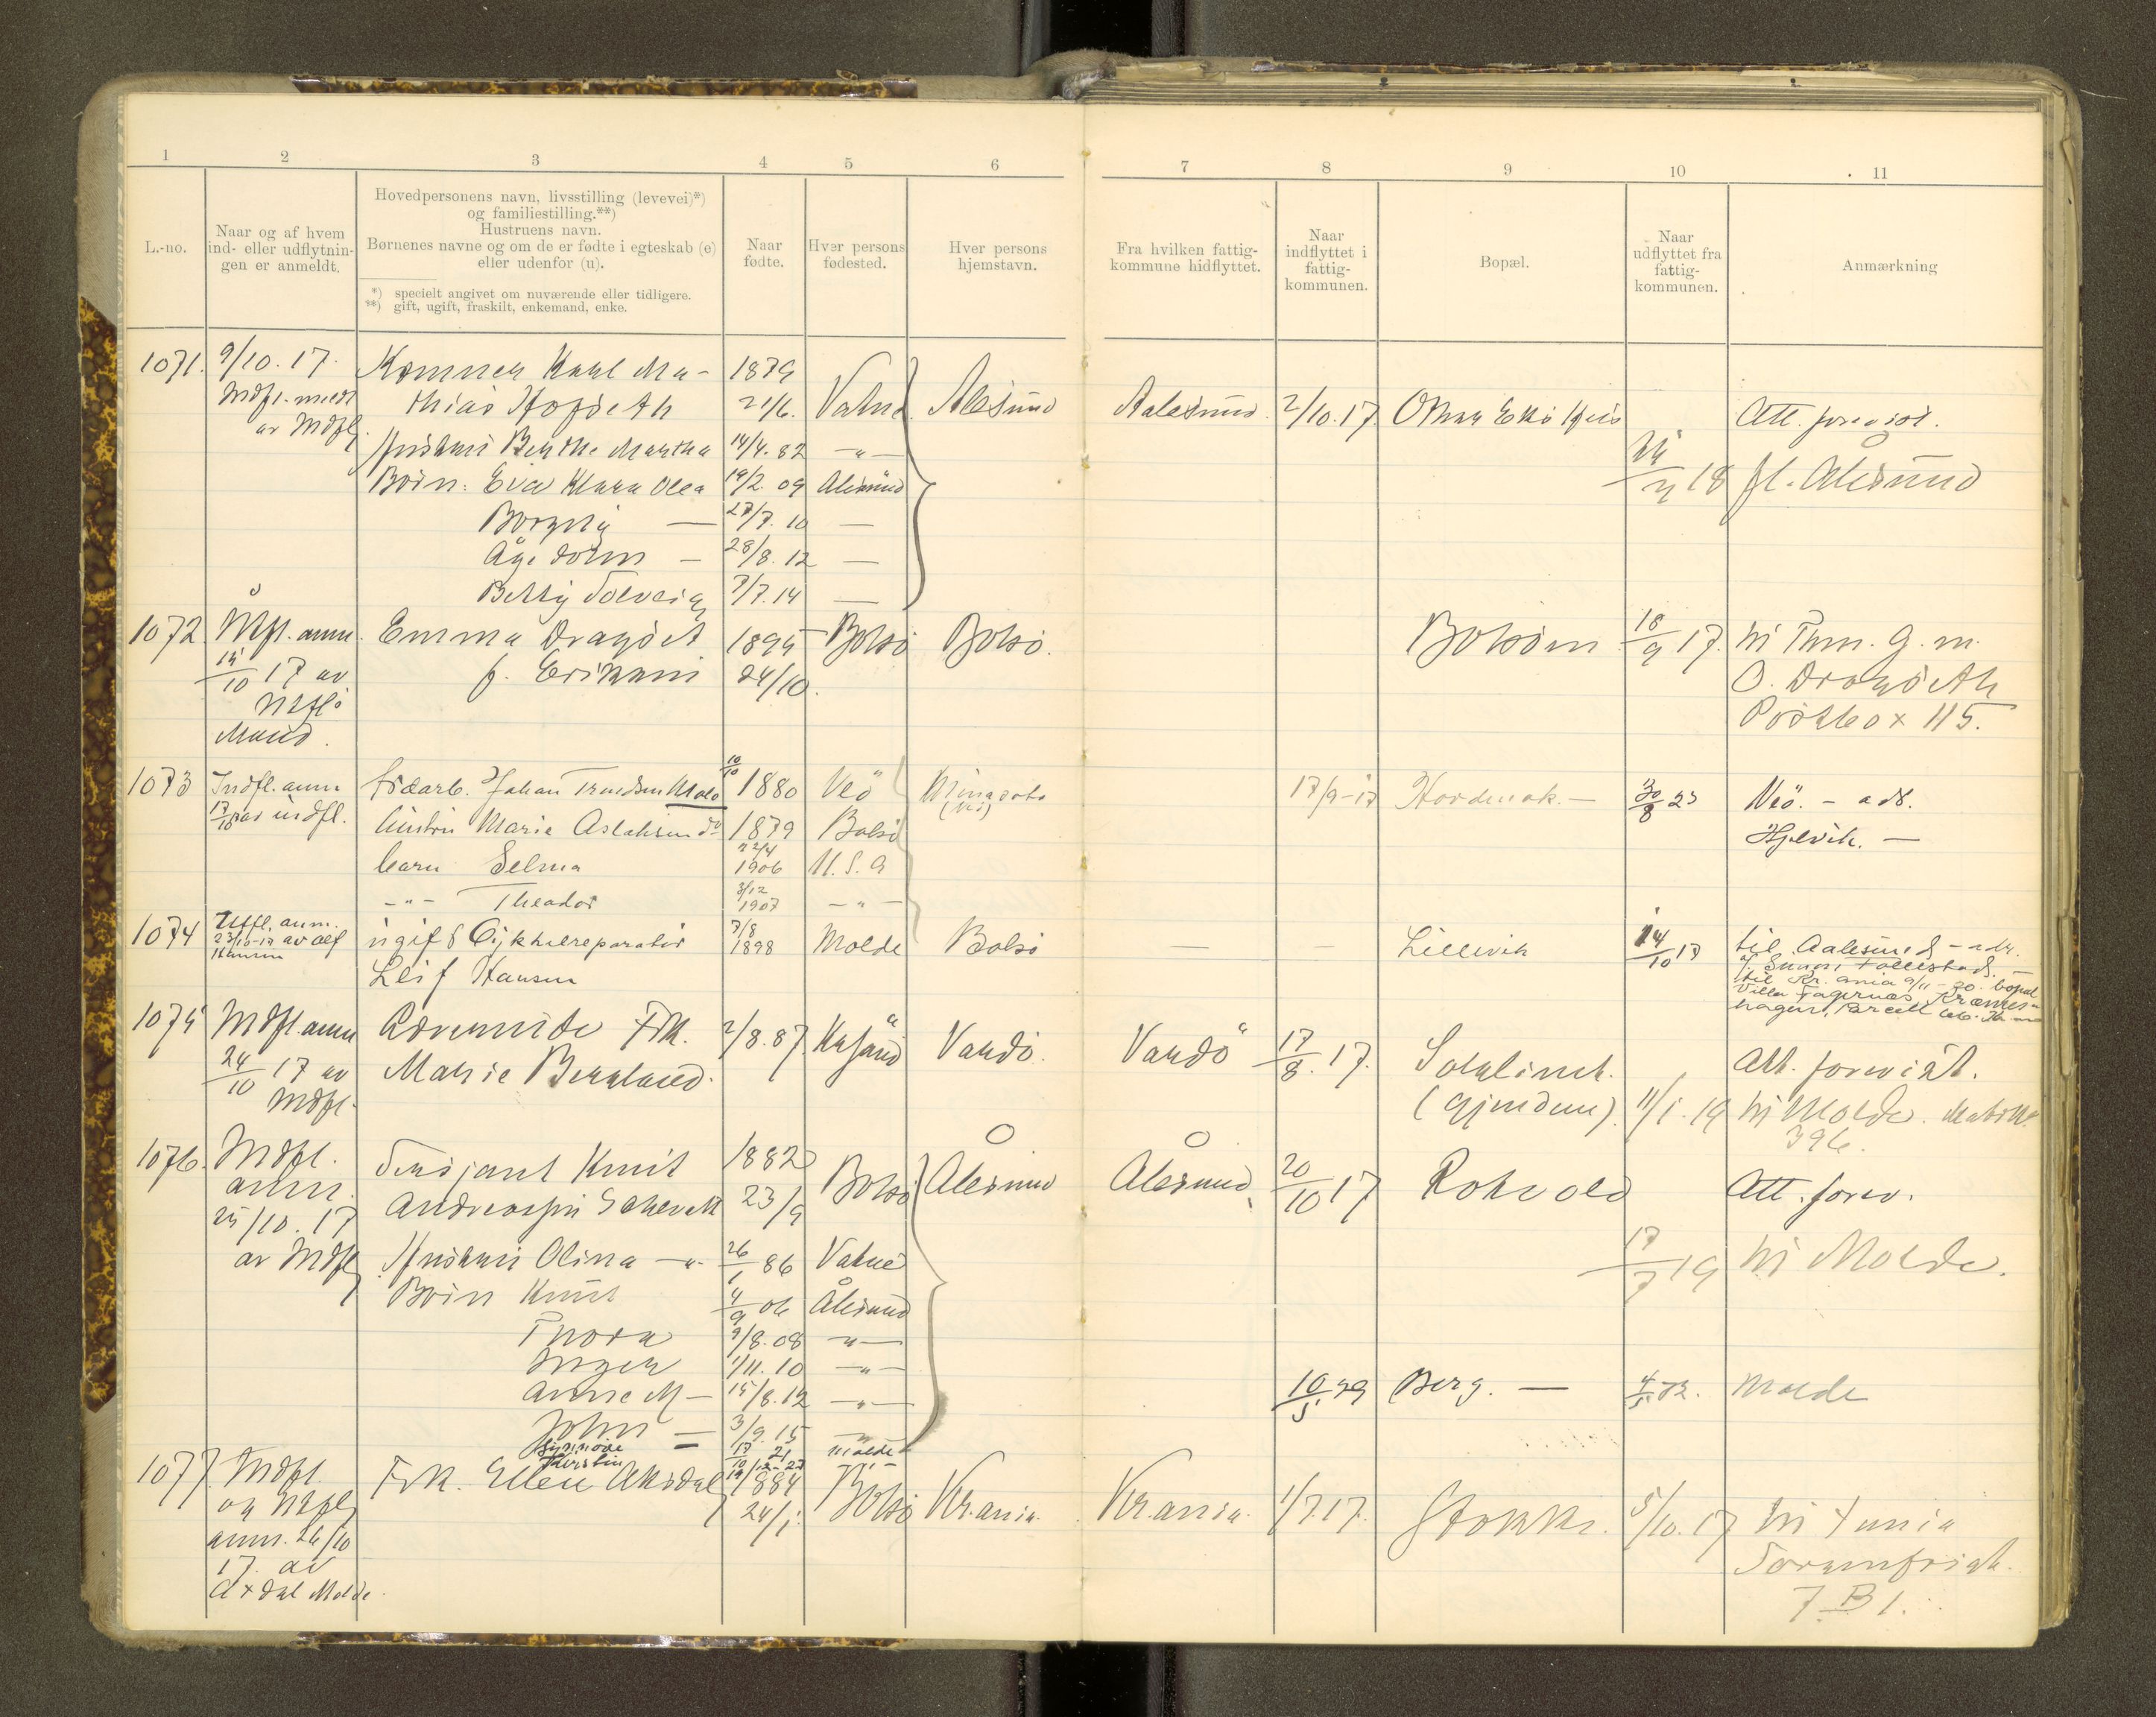 1 2 3 4 5 6 7 8 9 10 11
L.-no.
Naar og af hvem
ind- eller udflytnin-
gen er anmeldt.
Hovedpersonens navn, livsstilling (levevei)*)
og familiestilling.**)
Hustruens navn.
Børnenes navne og om de er fødte i egteskab (e)
eller udenfor (u).
*) specielt angivet om nuværende eller tidligere.
**) gift, ugift, fraskilt, enkemand, enke.
Naar
fødte.
Hver persons
fødested.
Hver persons
hjemstavn.
Fra hvilken fattig-
kommune hidflyttet.
Naar
indflyttet i
fattig-
kommunen.
Bopæl.
Naar
udflyttet fra
fattig-
kommunen.
Anmærkning
1071. 9/10.17. Karl Ma- 1879
Indfl. meldt thias Hofseth 21/6. Vatne Ålesund Aalesund. 2/10.17. Att. forevist.
av Indfl.
Hustru Berthe Martha 14/4.82 -"-
Børn: Eva Klara Olea 19/2.09 Ålesund 18 fl. Ålesund
Borghy — 27/7.10 —
Åge John — 28/8.12 —
Betty Solveig 7/7.14 —
1072. Utfl. anm. Emma Dragset 1895 Bolsø Bolsø. Bolsøen 18/9 17. til Thm. G. m.
15/10 17 av f. Eriksen 24/10. O. Dragseth
Utfl.s Postbox 115.
Mand.
1073 Indfl. anm. Johan Trondsen Molo 10/10 1880 Veø Minesota 17/9-17 Hordenak. — 30/8 23 Veø. - adr.
17/10 av indfl. hustru Marie Aslaksen do 1879 Bolsø (Veø) Hjelvik. —
barn Selma 22/4 1906 U.S.A
-"- Theodor 3/12 1907 -"-
1074 Utfl. anm. ugift Cykkelreparatør 7/8 1898 Molde Bolsø — — Lillevik 14/10 17 til Aalesund - adr.
23/10-17 av Alf Hansen Leif Hansen
til Kr.ania 9/11-20. bopæl
Villa Fagernæs,
1075 Indfl. anm Frk. 2/8.87. Vardø. Vardø 17/8.17. Att. forevist.
24/10 17 av Marie Berglund. (Gjendem). 11/1.19 til Molde. Matr. Nr.
Indfl. 396.
1076. Indfl. Sersjant Knut 1882 Bolsø Ålesund Ålesund 20/10 17 Rokvold Att. forev.
anm. Andreassen 23/9
25/10.17
av Indfl. Hustru Olina -"- 26/1 86 Vatne 17/7 19 til Molde.
Børn Knut 4/9 06 Ålesund
Thora 9/8.08 -"-
Inger 1/11.10 -"-
Anne M — 15/8.12 -"- 10/5 29 Berg. — 4/5 32. Molde
John — 3/9.15 -"-
Synnøve — 17/10 21 Molde
Kirstin
1077. Indfl. Frk. Ellen Aksdal 1884 Bolsø Kr.ania Kr.ania. 1/7.17. Stokke. 5/10.17 til
og Utfl. 24/1.
anm. 26/10
17. av 7. B 1.
Axdal Molde.